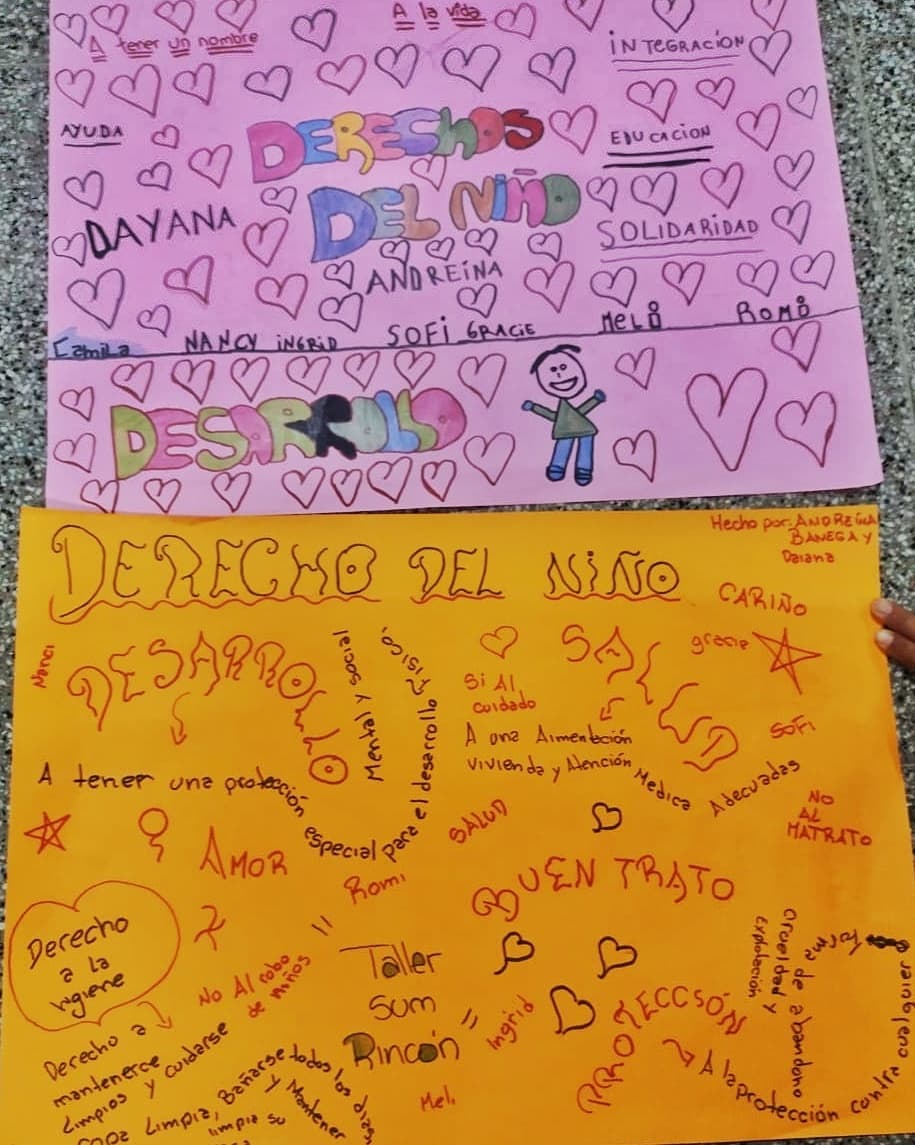 A tener un nombre
A la vida
INTEGRACIÓN
AYUDA
DERECHOS
DEL NIÑO
EDUCACION
DAYANA
SOLIDARIDAD
ANDREÍNA
Camila
NANCY
INGRID
SOFI
GRACIE
MELI
ROMI
DESARROLLO
Hecho por: ANDREÍNA
BANEGA Y
Daiana
DERECHO DEL NIÑO
CARIÑO
Nanci
DESARROLLO
A tener una protección especial para el desarrollo físico,
Mental y social
SALUD
gracie
Si Al
cuidado
A una Alimentación
Vivienda y Atención Medica Adecuadas
SOFI
NO
AL
MATRATO
AMOR
SALUD
Romi
BUEN TRATO
Derecho
a la
higiene
No Al robo
de niños
Taller
Sum
Rincón
Ingrid
Mel.
PROTECCSÓN
A la protección contra cualquier forma
de abandono
crueldad y
Explotación
Derecho a
mantenerce
Limpios y cuidarse
ropa Limpia, Bañarse todos los dias
y Mantener
limpia su